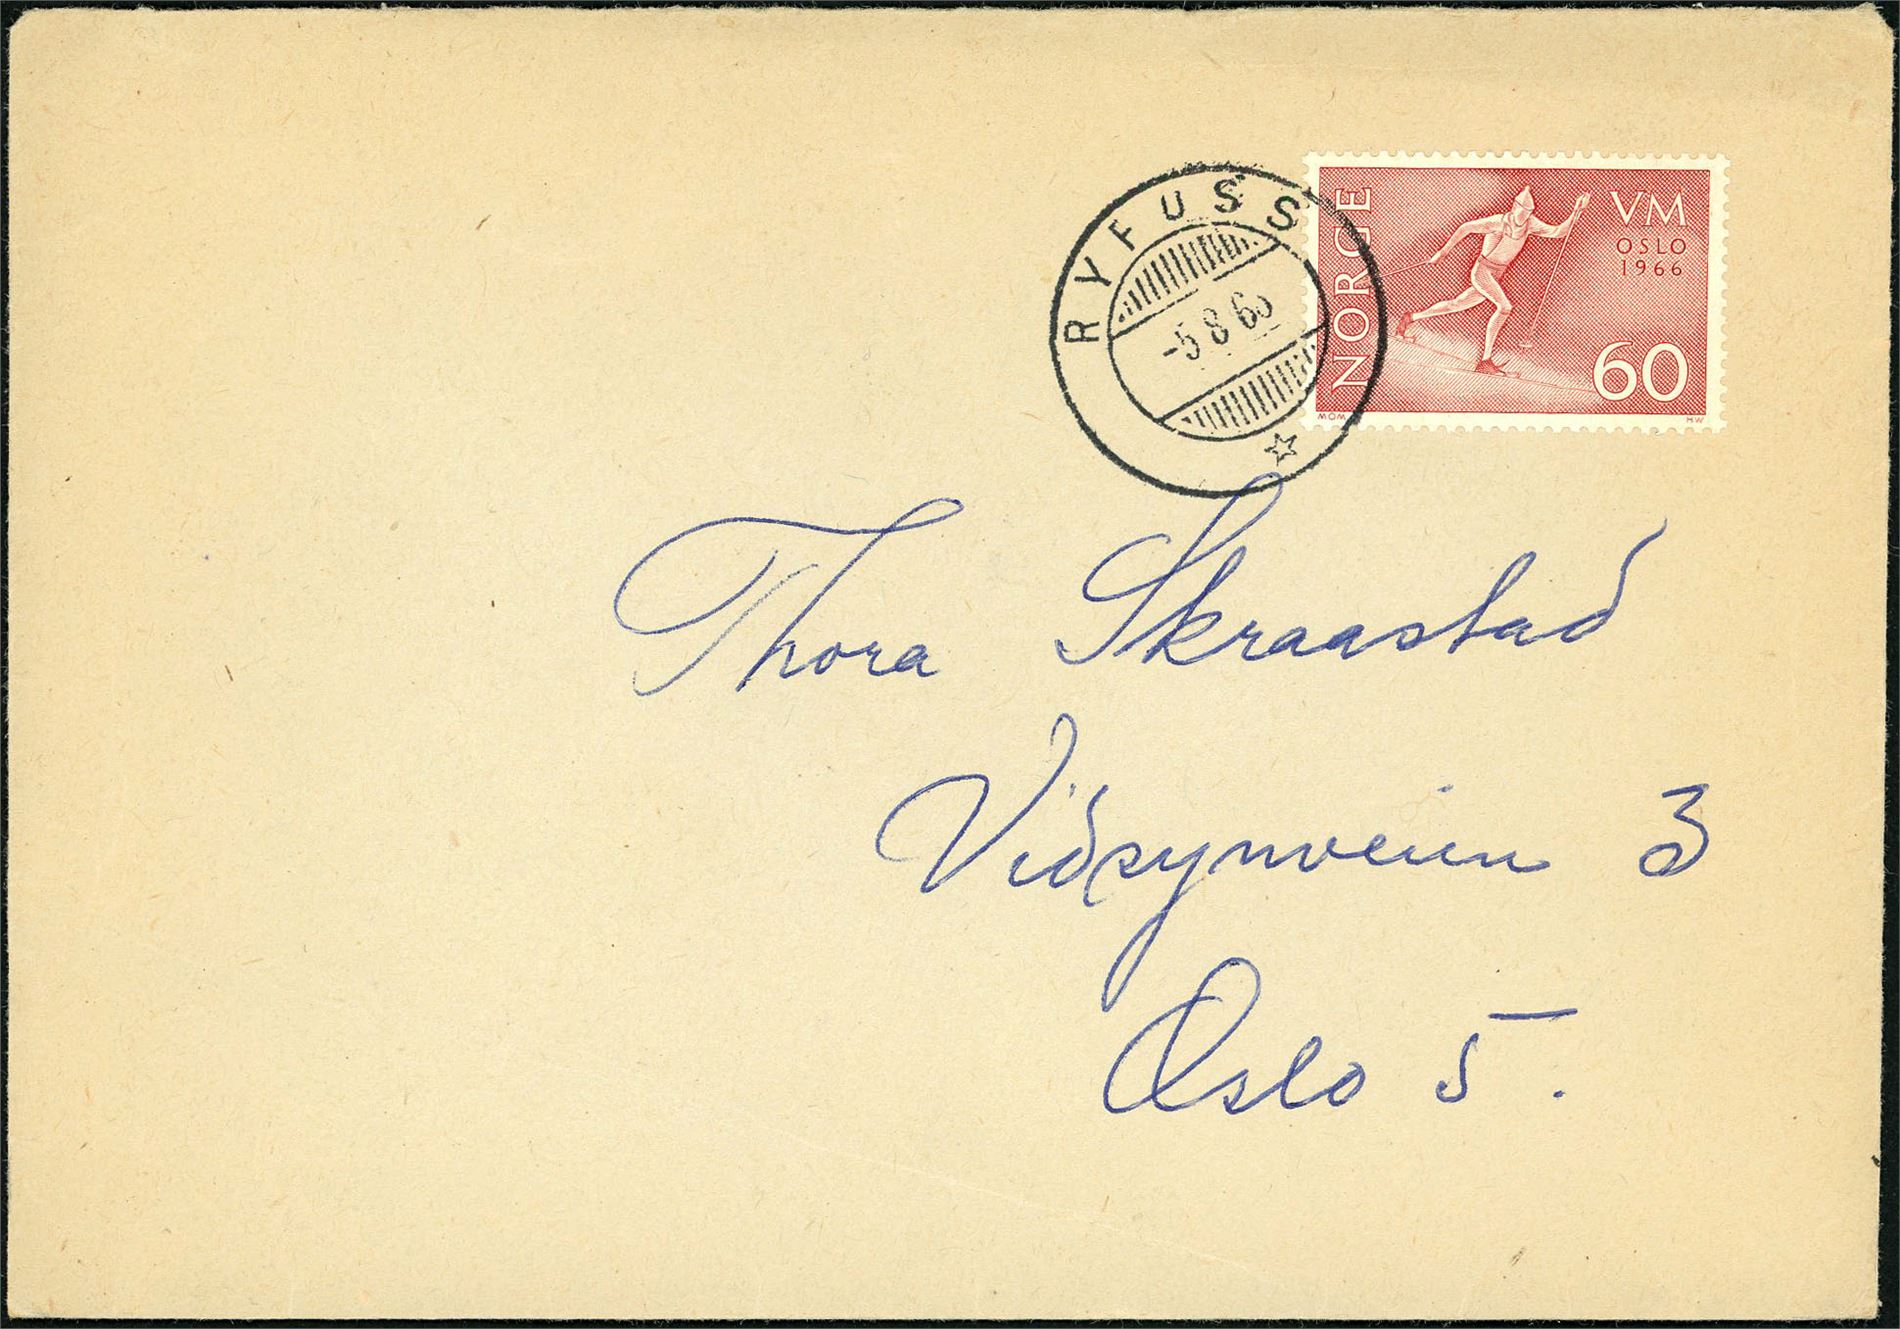 RYFUSS
-5 8 66
NORGE
VM
OSLO
1966
60
MOM
HW
Thora Skraastad
Vidsynveien 3
Oslo 5.